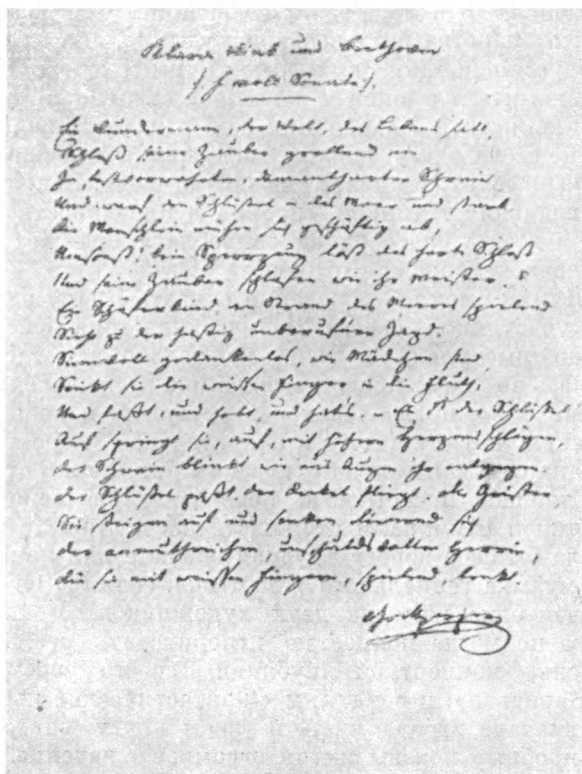 Klara Wiek und Beethoven
(F moll Sonate).
Ein Wundermann, der Welt, des Lebens satt,
Schloß seine Zauber grollend ein
In festverwahrten, demantharten Schrein
Und warf den Schlüssel in das Meer und starb
Die Menschlein mühen sich geschäftig ab,
Umsonst! kein Sperrzeug löst das harte Schloß
Und seine Zauber schlafen wie ihr Meister.
Ein Schäferkind, am Strand des Meeres spielend
Sieht zu der hastig unberufnen Jagd.
Sinnvoll gedankenlos, wie Mädchen sind,
Senkt sie die weissen Finger in die Fluth,
Und faßt, und hebt, und hats. – Es ist der Schlüssel
Auf springt sie, auf, mit höhern Herzensschlägen,
Der Schrein blinkt wie aus Augen ihr entgegen.
Der Schlüssel paßt, der Deckel fliegt. Die Geister,
Sie steigen auf und senken dienend sich
Der anmuthreichen, unschuldsvollen Herrin,
Die sie mit weissen Fingern, spielend, lenkt.
Grillparzer